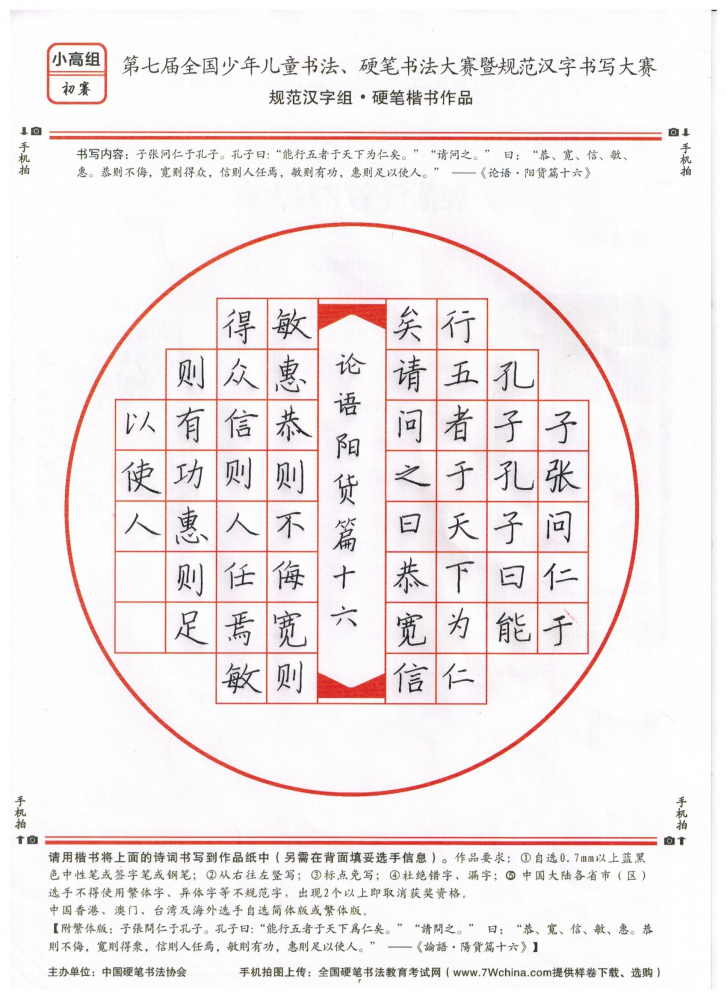 小高组
初赛
第七届全国少年儿童书法、硬笔书法大赛暨规范汉字书写大赛
规范汉字组·硬笔楷书作品
手机拍
手机拍
书写内容：子张问仁于孔子。孔子曰：“能行五者于天下为仁矣。”“请问之。” 曰：“恭、宽、信、敏、
惠。恭则不侮，宽则得众，信则人任焉，敏则有功，惠则足以使人。” ——《论语·阳货篇十六》
子张问仁于
孔子孔子曰能
行五者于天下为仁
矣请问之曰恭宽信
论语阳货篇十六
敏惠恭则不侮宽则
得众信则人任焉敏
则有功惠则足
以使人
手机拍
手机拍
请用楷书将上面的诗词书写到作品纸中（另需在背面填妥选手信息）。作品要求：①自选0.7mm以上蓝黑
色中性笔或签字笔或钢笔；②从右往左竖写；③标点免写；④杜绝错字、漏字；⑤ 中国大陆各省市（区）
选手不得使用繁体字、异体字等不规范字，出现2个以上即取消获奖资格。
中国香港、澳门、台湾及海外选手自选简体版或繁体版。
【附繁体版：子張問仁于孔子。孔子曰：“能行五者于天下爲仁矣。”“請問之。” 曰：“恭、寬、信、敏、惠。恭
则不侮，寬則得衆，信則人任焉，敏則有功，惠則足以使人。” ——《論語·陽貨篇十六》】
主办单位：中国硬笔书法协会
手机拍图上传：全国硬笔书法教育考试网（www.7Wchina.com提供样卷下载、选购）